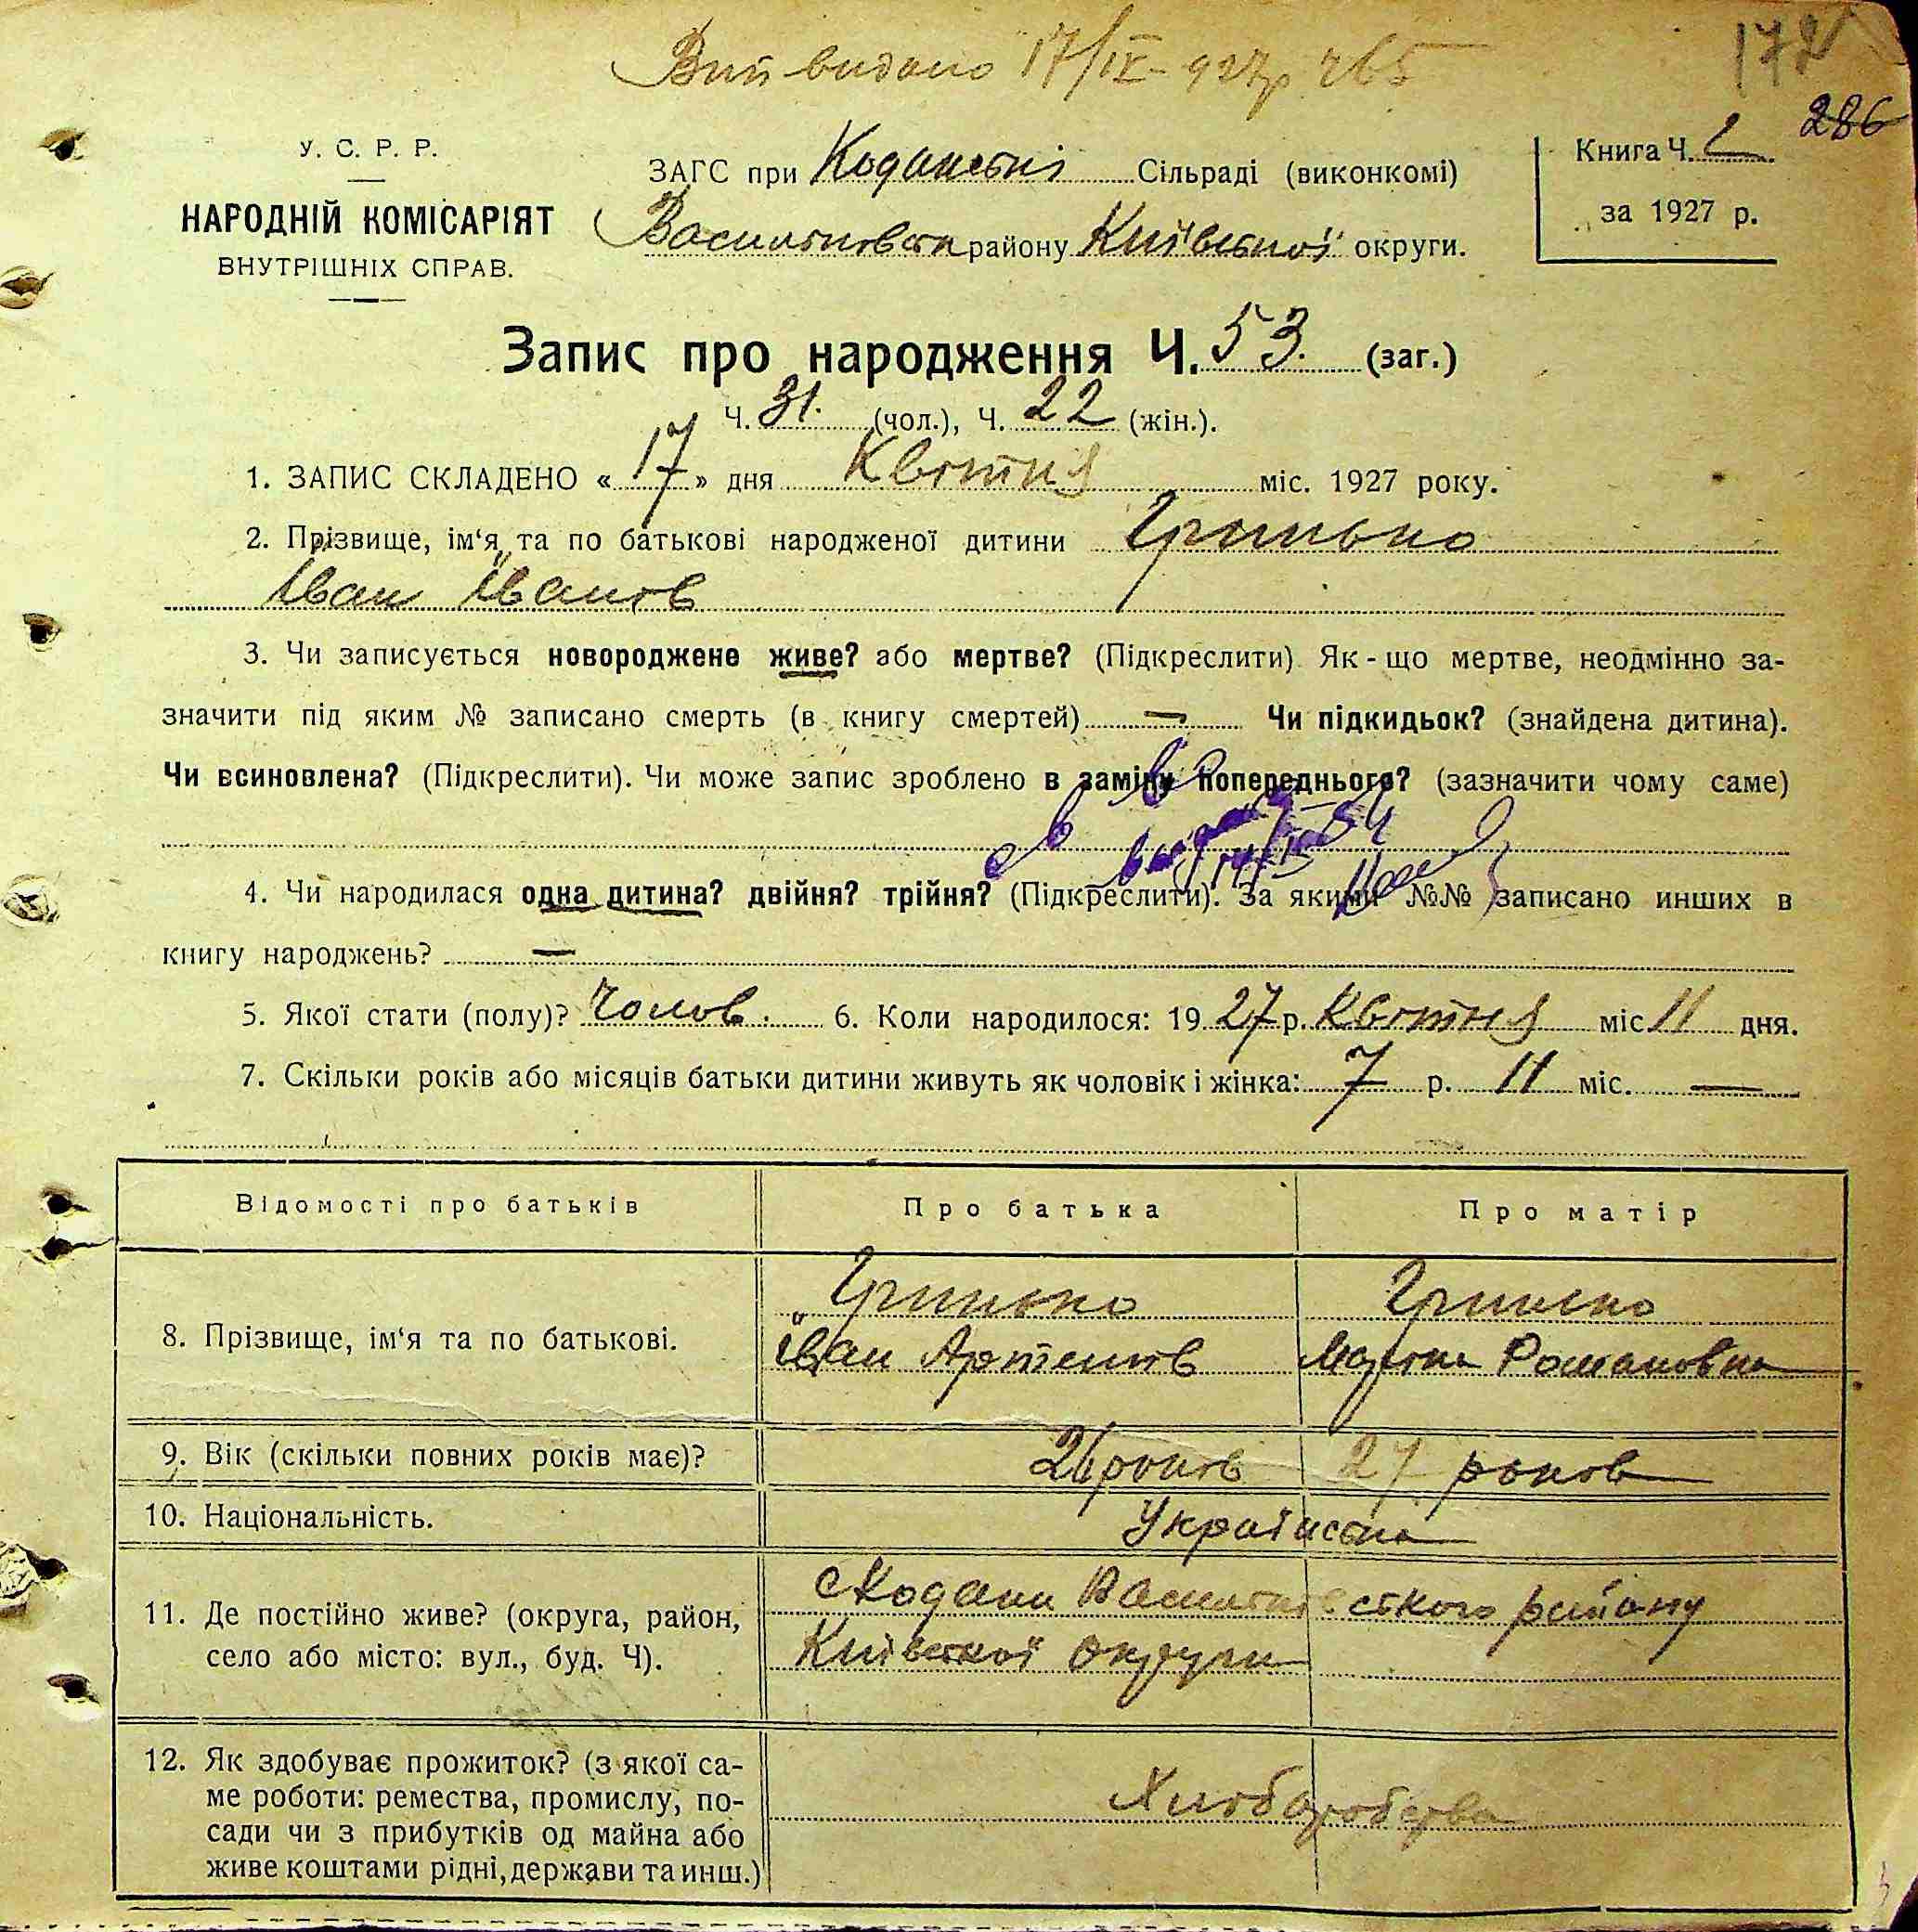 видано 17/IX-927р.
172
286
У. С. Р. Р.
НАРОДНІЙ КОМІСАРІЯТ
ВНУТРІШНІХ СПРАВ.
ЗАГС при Коданській Сільраді (виконкомі)
Васильківськ району Київської округи.
Книга Ч. 2
за 1927 р.
Запис про народження Ч. 53. (заг.)
Ч. 31. (чол.), Ч. 22 (жін.).
1. ЗАПИС СКЛАДЕНО « 17 » дня Квітня міс. 1927 року.
2. Прізвище, ім'я та по батькові народженої дитини Гринько
Іван Іванов
3. Чи записується новороджене живе? або мертве? (Підкреслити) Як-що мертве, неодмінно за-
значити під яким № записано смерть (в книгу смертей) — Чи підкидьок? (знайдена дитина).
Чи всиновлена? (Підкреслити). Чи може запис зроблено в заміну попереднього? (зазначити чому саме)
4. Чи народилася одна дитина? двійня? трійня? (Підкреслити). За якими №№ записано инших в
книгу народжень? —
5. Якої стати (полу)? Чолов. 6. Коли народилося: 1927 р. Квітня міс 11 дня.
7. Скільки років або місяців батьки дитини живуть як чоловік і жінка: 7 р. 11 міс. —
Відомості про батьків
Про батька
Про матір
8. Прізвище, ім'я та по батькові.
Гринько
Іван Артемів
Гринько
Романовна
9. Вік (скільки повних років має)?
26 років
27 років
10. Національність.
Українська
11. Де постійно живе? (округа, район,
село або місто: вул., буд. Ч).
с Кодаки Васильківського району
Київської округи
12. Як здобуває прожиток? (з якої са-
ме роботи: ремества, промислу, по-
сади чи з прибутків од майна або
живе коштами рідні, держави та инш.)
Хліборобства